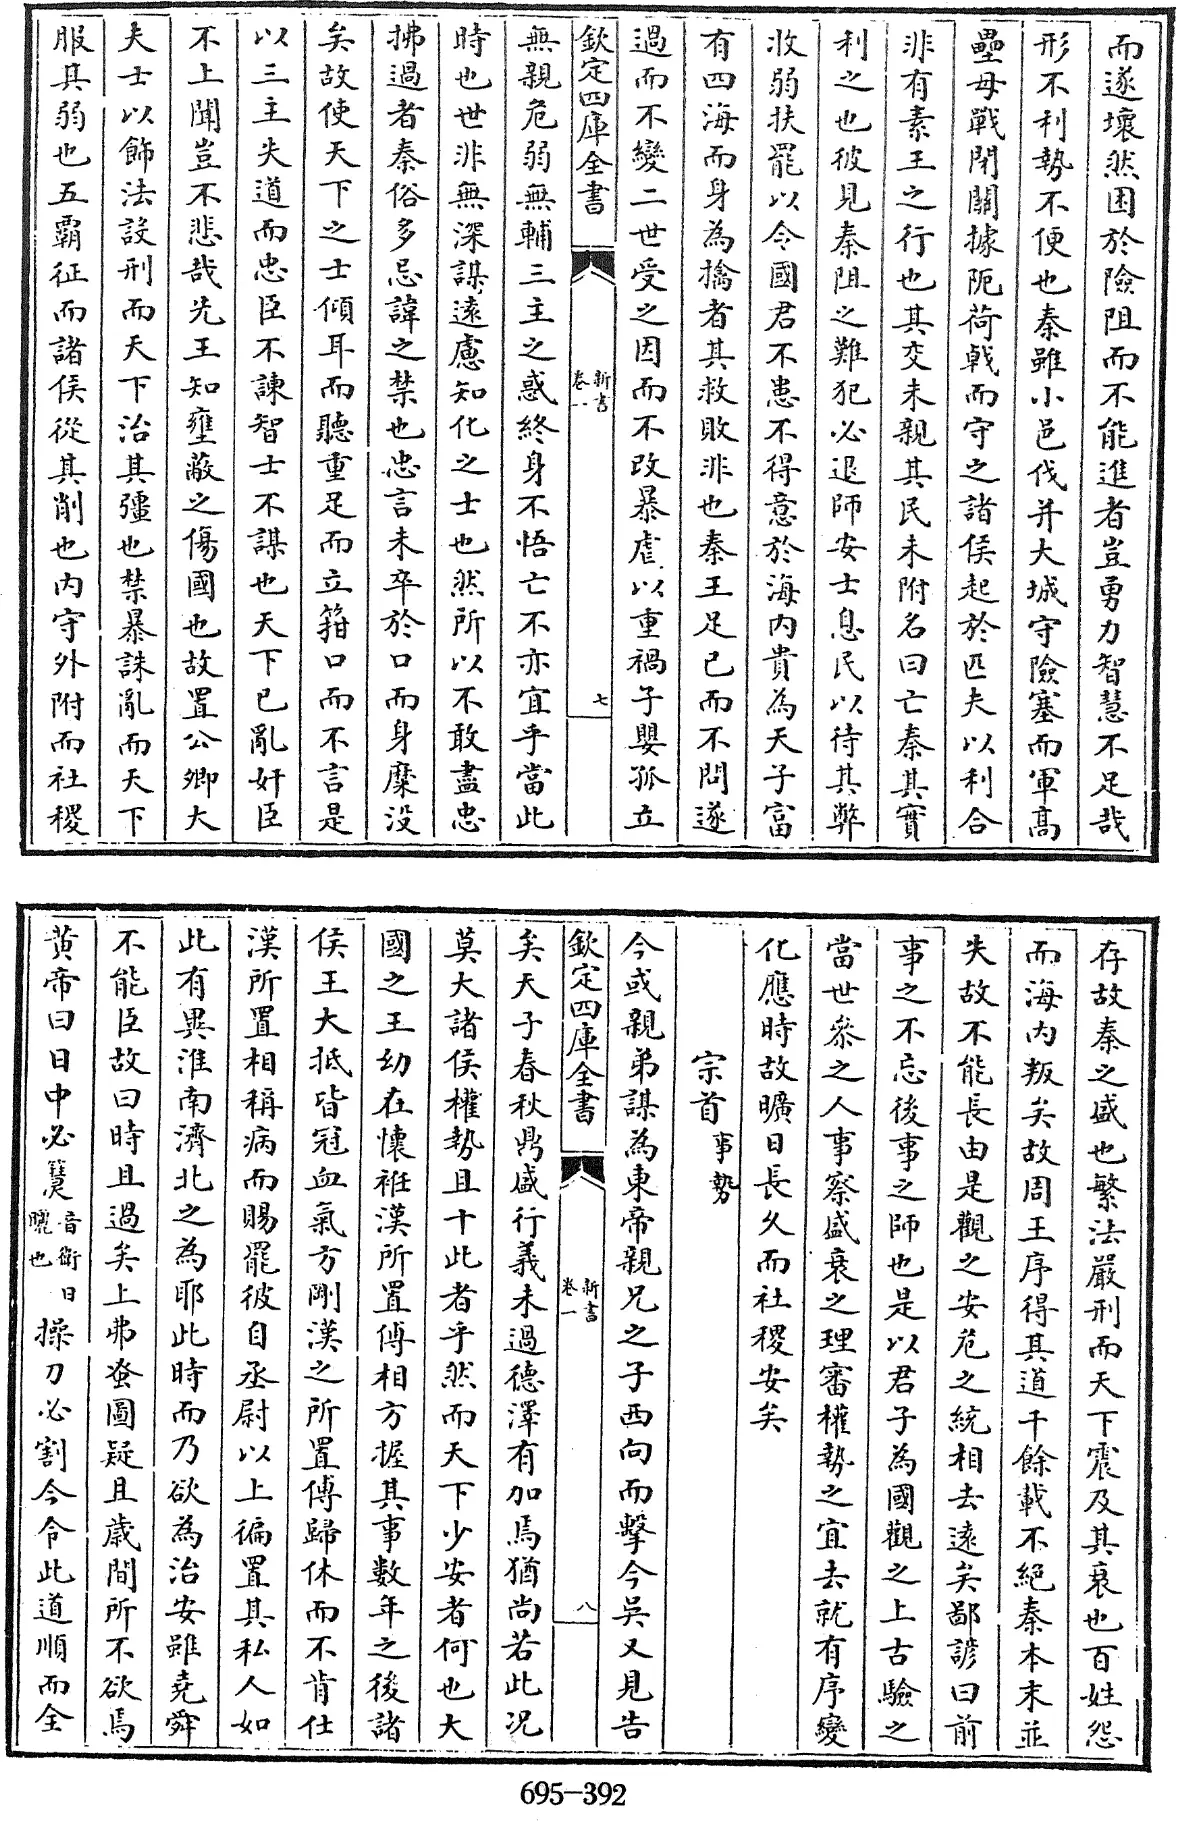 而遂壞然困於險阻而不能進者豈勇力智慧不足哉
形不利勢不便也秦雖小邑伐并大城守險塞而軍高
壘毋戰閉關據阨荷戟而守之諸侯起於匹夫以利合
非有素王之行也其交未親其民未附名曰亡秦其實
利之也彼見秦阻之難犯必退師安士息民以待其弊
收弱扶罷以令國君不患不得意於海内貴為天子富
有四海而身為擒者其救敗非也秦王足已而不問遂
過而不變二世受之因而不改暴虐以重禍子嬰孤立
欽定四庫全書
新書
卷一
七
無親危弱無輔三主之惑終身不悟亡不亦宜乎當此
時也世非無深謀遠慮知化之士也然所以不敢盡忠
拂過者秦俗多忌諱之禁也忠言未卒於口而身糜没
矣故使天下之士傾耳而聽重足而立箝口而不言是
以三主失道而忠臣不諫智士不謀也天下已亂奸臣
不上聞豈不悲哉先王知壅蔽之傷國也故置公卿大
夫士以飾法設刑而天下治其彊也禁暴誅亂而天下
服其弱也五霸征而諸侯從其削也内守外附而社稷
存故秦之盛也繁法嚴刑而天下震及其衰也百姓怨
而海内叛矣故周王序得其道千餘載不絕秦本末並
失故不能長由是觀之安危之統相去遠矣鄙諺曰前
事之不忘後事之師也是以君子為國觀之上古驗之
當世參之人事察盛衰之理審權勢之宜去就有序變
化應時故曠日長久而社稷安矣
宗首 事勢
今或親弟謀為東帝親兄之子西向而擊今吳又見告
欽定四庫全書
新書
卷一
八
矣天子春秋鼎盛行義未過德澤有加焉猶尚若此况
莫大諸侯權勢且十此者乎然而天下少安者何也大
國之王幼在懷袵漢所置傅相方握其事數年之後諸
侯王大抵皆冠血氣方剛漢之所置傅歸休而不肯仕
漢所置相稱病而賜罷彼自丞尉以上徧置其私人如
此有異淮南濟北之為耶此時而乃欲為治安雖堯舜
不能臣故曰時且過矣上弗蚤圖疑且歲間所不欲焉
黄帝曰日中必㷸音衛日曬也操刀必割今令此道順而全
695-392